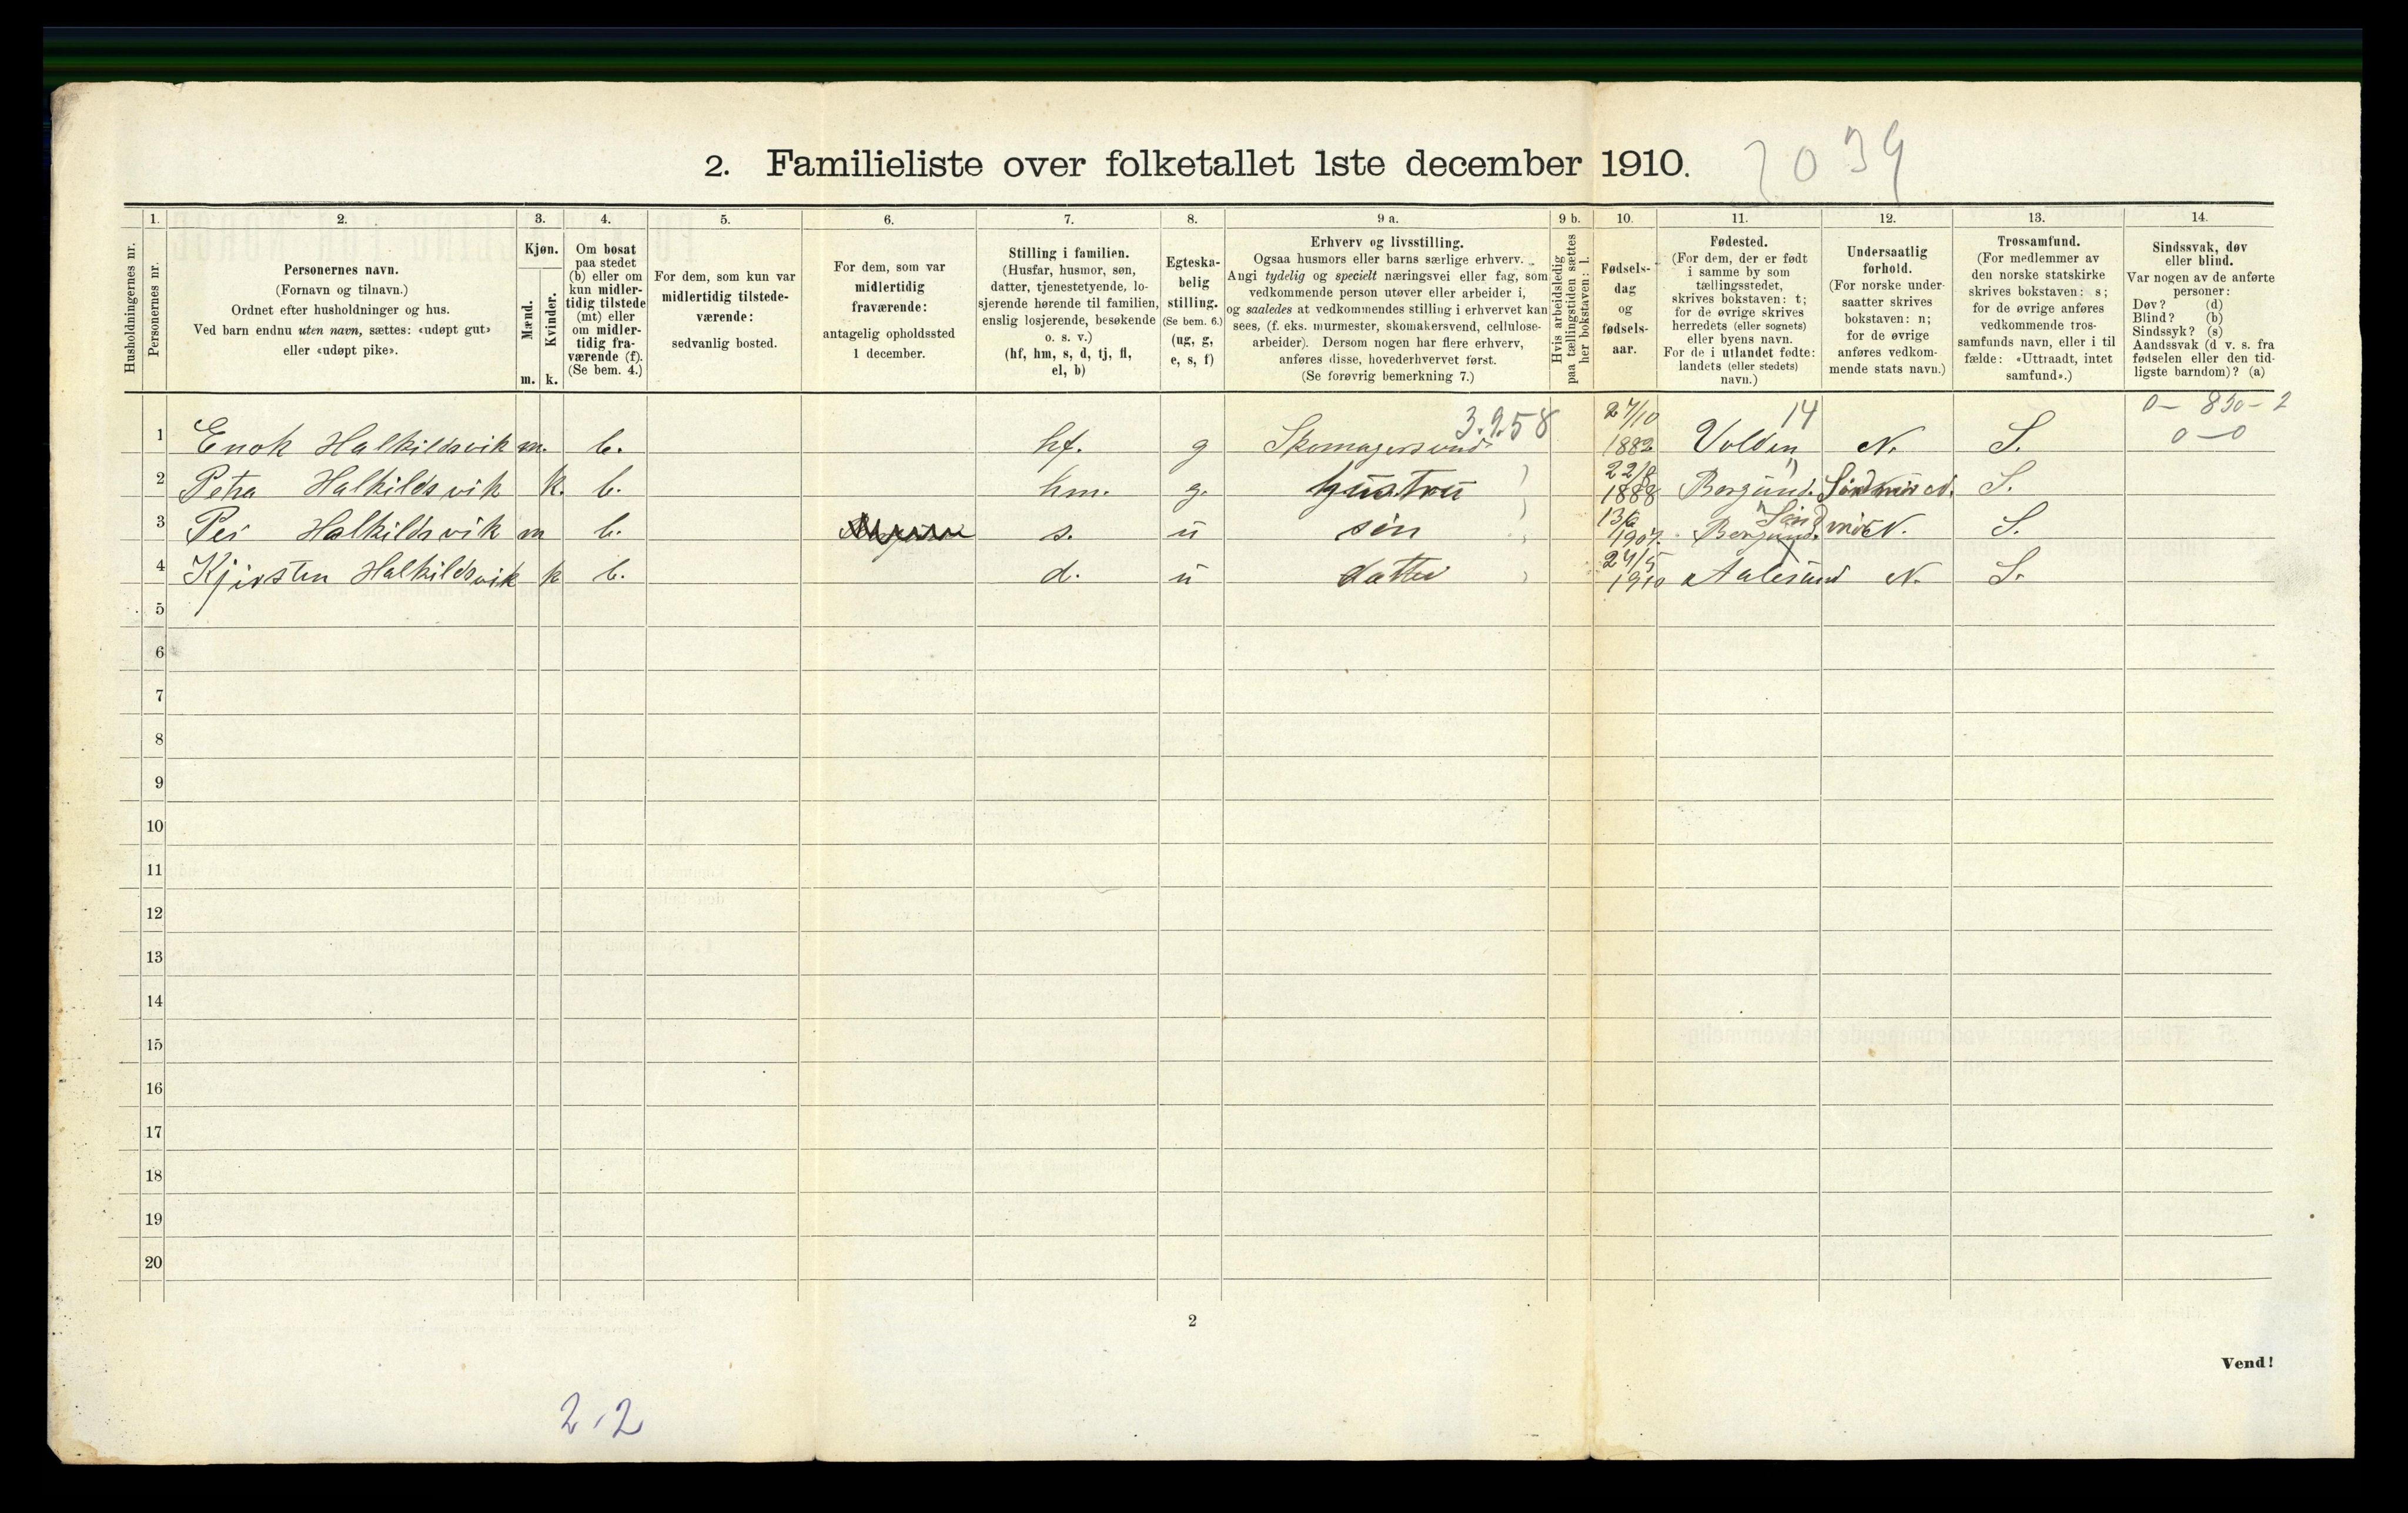 2. Familieliste over folketallet 1ste december 1910.
2039
Husholdningernes nr.
1.
Personernes nr.
2.
Personernes navn.
(Fornavn og tilnavn.)
Ordnet efter husholdninger og hus.
Ved barn endnu uten navn, sættes: «udøpt gut»
eller «udøpt pike».
3.
Kjøn.
Mænd.
Kvinder.
m. k.
4.
Om bosat
paa stedet
(b) eller om
kun midler-
tidig tilstede
(mt) eller
om midler-
tidig fra-
værende (f).
(Se bem. 4.)
5.
For dem, som kun var
midlertidig tilstede-
værende:
sedvanlig bosted.
6.
For dem, som var
midlertidig
fraværende:
antagelig opholdssted
1 december.
7.
Stilling i familien.
(Husfar, husmor, søn,
datter, tjenestetyende, lo-
sjerende hørende til familien,
enslig losjerende, besøkende
o. s. v.)
(hf, hm, s, d, tj, fl,
el, b)
8.
Egteska-
belig
stilling.
(Se bem. 6.)
(ug, g,
e, s, f)
9 a.
Erhverv og livsstilling.
Ogsaa husmors eller barns særlige erhverv.
Angi tydelig og specielt næringsvei eller fag, som
vedkommende person utøver eller arbeider i,
og saaledes at vedkommendes stilling i erhvervet kan
sees, (f. eks. murmester, skomakersvend, cellulose-
arbeider). Dersom nogen har flere erhverv,
anføres disse, hovederhvervet først.
(Se forøvrig bemerkning 7.)
9 b.
Hvis arbeidsledig
paa tællingstiden sættes
her bokstaven: l.
10.
Fødsels-
dag
og
fødsels-
aar.
11.
Fødested.
(For dem, der er født
i samme by som
tællingsstedet,
skrives bokstaven: t;
for de øvrige skrives
herredets (eller sognets)
eller byens navn.
For de i utlandet fødte:
landets (eller stedets)
navn.)
12.
Undersaatlig
forhold.
(For norske under-
saatter skrives
bokstaven: n;
for de øvrige
anføres vedkom-
mende stats navn.)
13.
Trossamfund.
(For medlemmer av
den norske statskirke
skrives bokstaven: s;
for de øvrige anføres
vedkommende tros-
samfunds navn, eller i til
fælde: «Uttraadt, intet
samfund».)
14.
Sindssvak, døv
eller blind.
Var nogen av de anførte
personer:
Døv? (d)
Blind? (b)
Sindssyk? (s)
Aandssvak (d v. s. fra
fødselen eller den tid-
ligste barndom)? (a)
3.9.58 27/10 14 0 - 830 - 2
1 Enok Halkildsvik m. b. hf. g Skomagersvend 1882 Volden N. S. 0-0
22/8 "
2 Petra Halkildsvik k. b. hm. g. hustru " 1888 Borgund. Søndmør N. S.
13/6
3 Per Halkildsvik m b. s. u søn " 1907. Borgund. Søndmør N. S.
27/5
4 Kjirsten Halkildsvik k b. d. u datter " 1910 Aalesund N. S.
5
6
7
8
9
10
11
12
13
14
15
16
17
18
19
20
2
Vend!
2,2